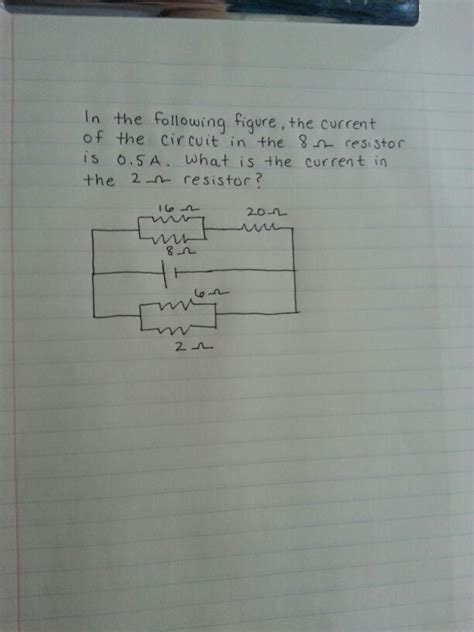 In the following figure, the current
of the circuit in the 8 Ω resistor
is 0.5A. What is the current in
the 2 Ω resistor?
16 Ω 20 Ω
8 Ω
6 Ω
2 Ω